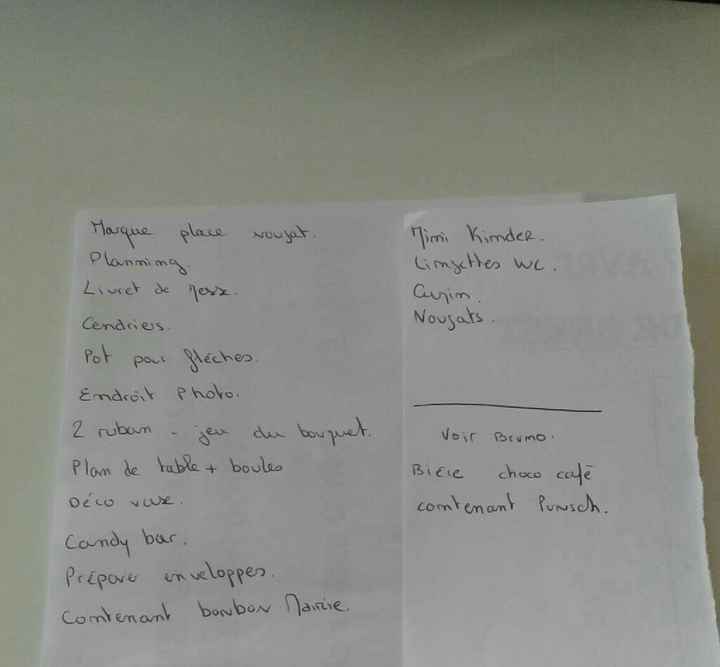 Marque place nougat.
Planning.
Livret de Messe.
Cendriers.
Pot pour flèches.
Endroit Photo.
2 ruban - jeu du bouquet.
Plan de table + boules
Déco vase.
Candy bar.
Prépare enveloppes.
Contenant bonbon Mairie.
Mimi Kinder.
Lingettes WC.
Nougats.
Voir Bruno.
Bière choco café
contenant Punsch.